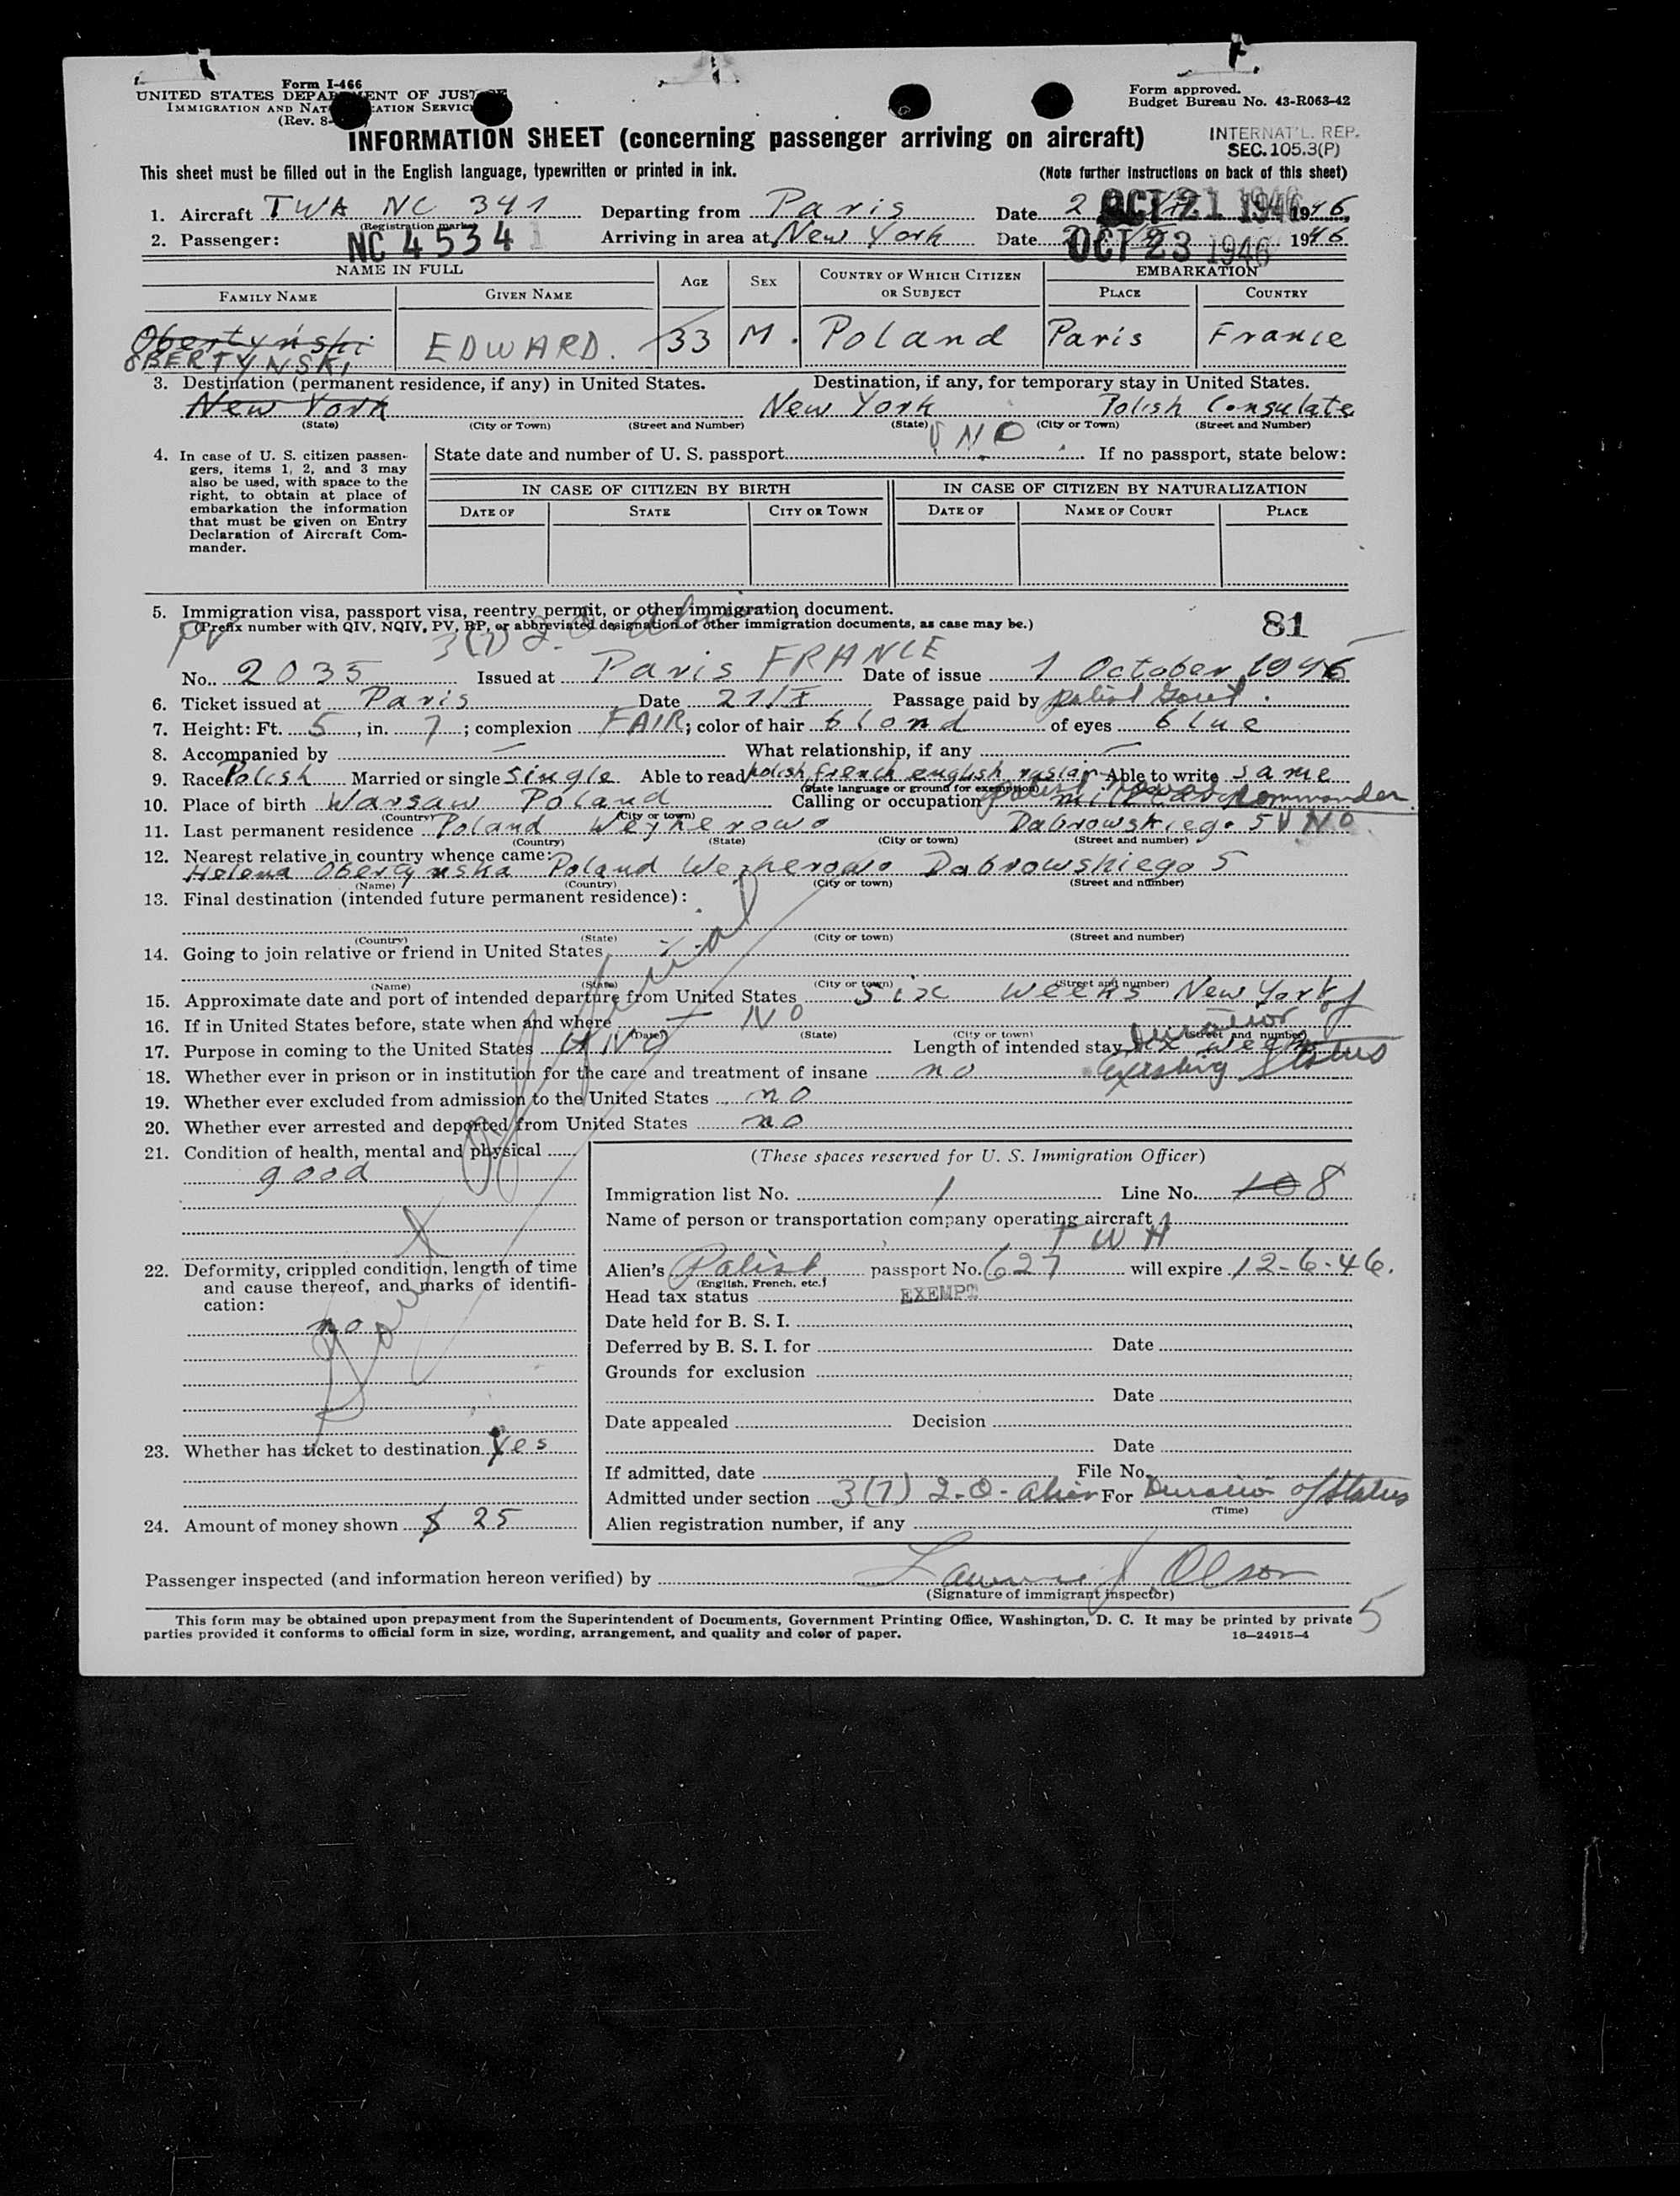 Form I-466
UNITED STATES DEPARTMENT OF JUSTICE
IMMIGRATION AND NATURALIZATION SERVICE
(Rev. 8-
Form approved.
Budget Bureau No. 43-R063-42
INFORMATION SHEET (concerning passenger arriving on aircraft)
INTERNAT'L. REP.
SEC. 105.3(P)
This sheet must be filled out in the English language, typewritten or printed in ink.
(Note further instructions on back of this sheet)
1. Aircraft TWA NC 341 Departing from Paris Date OCT 21 1946 1946
(Registration marks)
2. Passenger: NC 45341 Arriving in area at New York Date OCT 23 1946 1946
NAME IN FULL
FAMILY NAME GIVEN NAME AGE SEX COUNTRY OF WHICH CITIZEN OR SUBJECT EMBARKATION PLACE COUNTRY
Obertyński
OBERTYNSKI EDWARD. 33 M. Poland Paris France
3. Destination (permanent residence, if any) in United States. Destination, if any, for temporary stay in United States.
New York New York Polish Consulate
(State) (City or Town) (Street and Number) (State) (City or Town) (Street and Number)
UNO
4. In case of U. S. citizen passengers, items 1, 2, and 3 may also be used, with space to the right, to obtain at place of embarkation the information that must be given on Entry Declaration of Aircraft Commander.
State date and number of U. S. passport If no passport, state below:
IN CASE OF CITIZEN BY BIRTH IN CASE OF CITIZEN BY NATURALIZATION
DATE OF STATE CITY OR TOWN DATE OF NAME OF COURT PLACE
5. Immigration visa, passport visa, reentry permit, or other immigration document.
(Prefix number with QIV, NQIV, PV, RP, or abbreviated designation of other immigration documents, as case may be.) 81
PV 3(7) 2-O- Alien
No. 2035 Issued at Paris FRANCE Date of issue 1 October 1946
6. Ticket issued at Paris Date 21/X Passage paid by Polish Govt.
7. Height: Ft. 5, in. 7; complexion FAIR; color of hair blond of eyes blue
8. Accompanied by — What relationship, if any —
9. Race Polish Married or single single Able to read polish, french english rusian Able to write same
(State language or ground for exemption)
10. Place of birth Warsaw Poland Calling or occupation Polish Naval military Commander
(Country) (City or town)
11. Last permanent residence Poland Weyherowo Dabrowskiego 5 UNO
(Country) (State) (City or town) (Street and number)
12. Nearest relative in country whence came:
Helena Obertynska Poland Weyherowo Dabrowskiego 5
(Name) (Country) (City or town) (Street and number)
13. Final destination (intended future permanent residence):
(Country) (State) (City or town) (Street and number)
14. Going to join relative or friend in United States
(Name) (State) (City or town) (Street and number)
15. Approximate date and port of intended departure from United States six weeks New York
16. If in United States before, state when and where — NO
(Date) (State) (City or town) (Street and number)
17. Purpose in coming to the United States UNO Length of intended stay six weeks
Duration of Existing Status
18. Whether ever in prison or in institution for the care and treatment of insane no
19. Whether ever excluded from admission to the United States no
20. Whether ever arrested and deported from United States no
21. Condition of health, mental and physical
good
22. Deformity, crippled condition, length of time and cause thereof, and marks of identification:
no
Govt Official
23. Whether has ticket to destination Yes
24. Amount of money shown $ 25
(These spaces reserved for U. S. Immigration Officer)
Immigration list No. 1 Line No. 10 8
Name of person or transportation company operating aircraft
TWA
Alien's Polish passport No. 627 will expire 12-6-46.
(English, French, etc.)
Head tax status EXEMPT
Date held for B. S. I.
Deferred by B. S. I. for Date
Grounds for exclusion
Date
Date appealed Decision
Date
If admitted, date File No.
Admitted under section 3(7) 2-O- Alien For Duration of Status
(Time)
Alien registration number, if any
Passenger inspected (and information hereon verified) by Lawrence J Olson
(Signature of immigrant inspector)
This form may be obtained upon prepayment from the Superintendent of Documents, Government Printing Office, Washington, D. C. It may be printed by private
parties provided it conforms to official form in size, wording, arrangement, and quality and color of paper. 16—24915-4
5